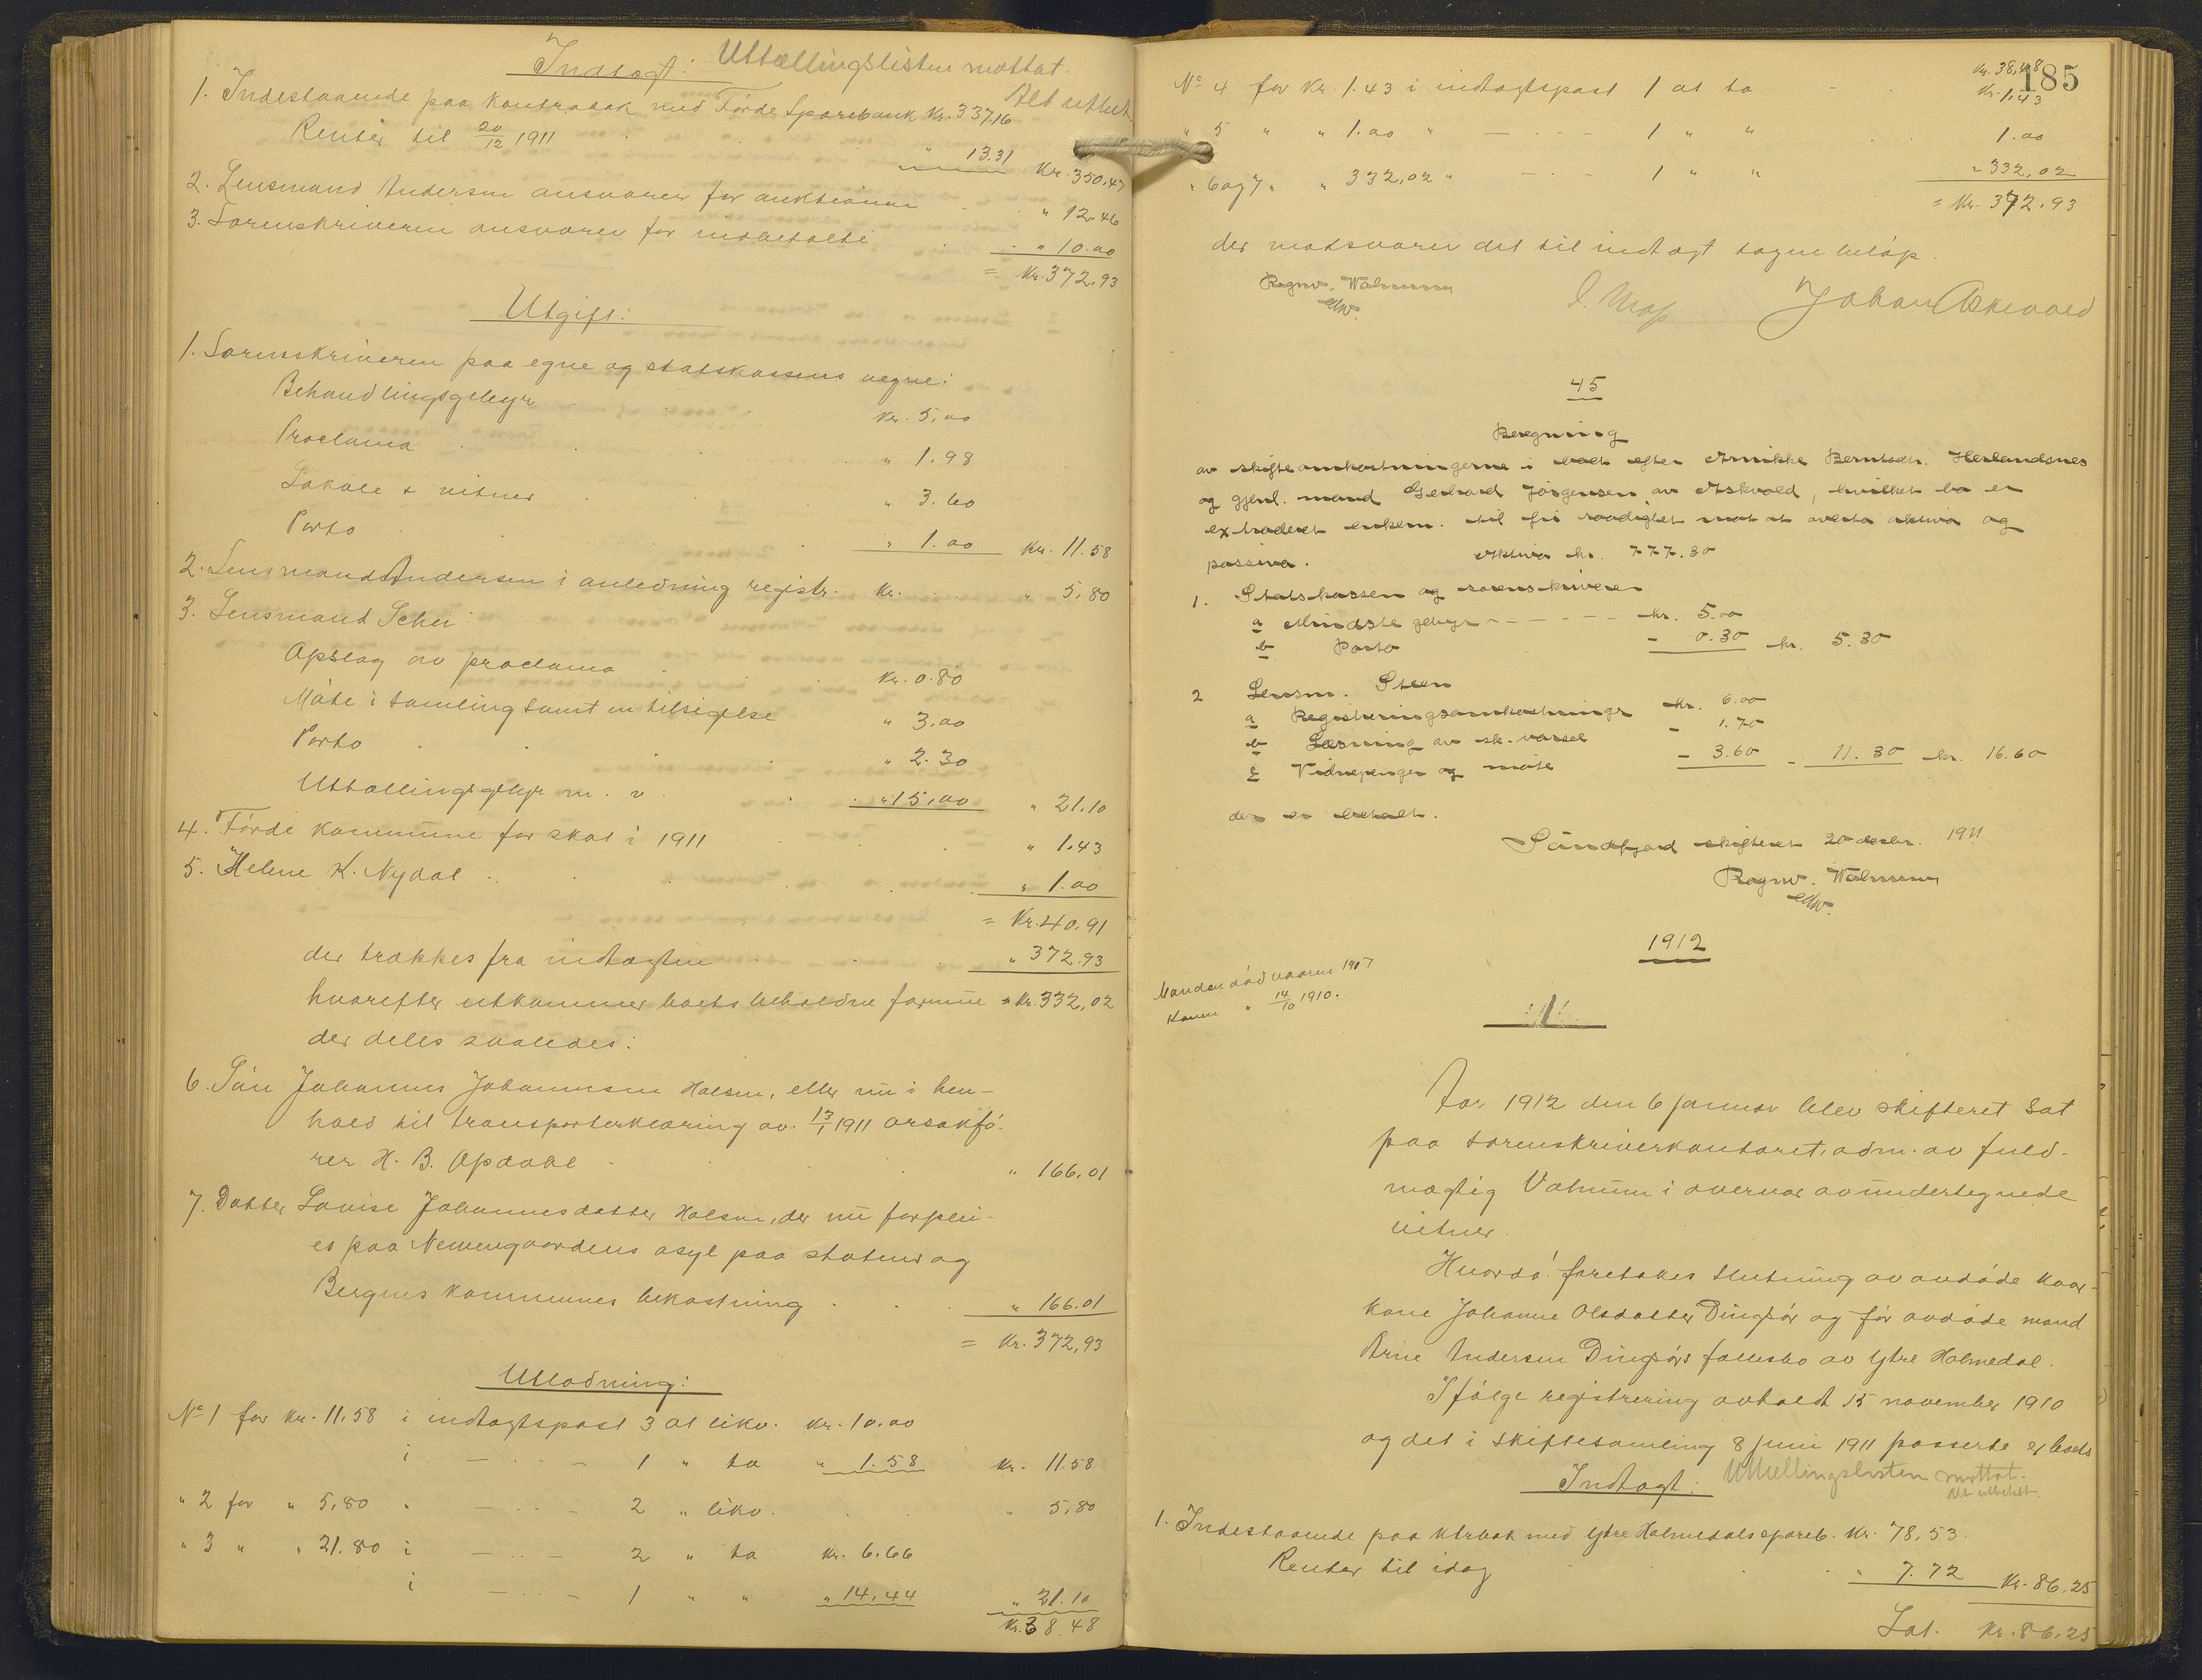 Indtægt: Uttællingslisten mottat.
Alt uttalt.
1. Indestaaende paa kontrabok med Førde Sparebank Kr. 337,16
Renter til 20/12 1911 " 13.31 Kr. 350,47
2. Lensmand Andersen ansvarer for auktionen " 12.46
3. Sorenskriveren ansvarer for indbetalte " 10.00
= Kr. 372,93
Utgift:
1. Sorenskriveren paa egne og statskassens vegne:
Behandlingsgebyr Kr. 5,00
Proclama " 1.98
Lokale & vitner " 3.60
Porto " 1.00 Kr. 11.58
2. Lensmand Andersen i anledning registr. Kr. " 5,80
3. Lensmand Schei:
Opslag av proclama Kr. 0.80
Møte i samling samt en tilsigelse " 3,00
Porto " 2.30
Uttællingsgebyr m. v. " 15,00 " 21.10
4. Førde kommune for skat i 1911 " 1,43
5. Helene K. Nydal " 1.00
= Kr. 40.91
der trækkes fra indtægten " 372.93
hvorefter utkommer boets beholdne formue = Kr. 332,02
der deles saaledes:
6. Søn Johannes Johannesen Halsen, eller nu i hen-
hold til transporterklæring av 13/1 1911 orsakfø-
rer H. B. Opdahl " 166,01
7. Datter Lovise Johannesdatter Halsen, der nu forplei-
es paa Neevengaardens asyl paa statens og
Bergens kommunes bekostning " 166.01
= Kr. 372,93
Utlodning:
No 1 for Kr. 11.58 i indtægtspost 3 at likv. Kr. 10.00
i — . . — 1 " ta " 1.58 Kr. 11.58
" 2 for " 5,80 " — . . — 2 " likv. " 5,80
" 3 " " 21.80 i — . . — 2 " ta Kr. 6.66
i — . . — 1 " " " 14,44 " 21.10
Kr. 38.48
185
Kr. 38,48
No 4 for Kr. 1.43 i indtægtspost 1 at ta Kr. 1,43
" 5 " " 1.00 " — . . - 1 " " 1.00
" 6 og 7 " " 332,02 " — . . - 1 " " " 332,02
= Kr. 372.93
der motsvarer det til indtægt tagne beløp.
Ragnv. Walnum
edsv.
Johan Askvold
45
Beregning
av skifteomkostningerne i boet efter Annikke Berntsdtr. Herlandsnes
og gjenl. mand Gerhard Jørgensen av Askvold, hvilket bo er
extraderet enkem. til fri raadighet mot at overta aktiva og
passiva. Aktiva kr. 777.30
1. Statskassen og sorenskriveren
a Mindste gebyr - - - - - - kr. 5.00
b Porto - 0.30 kr. 5.30
2 Lensm. Steen
a Registreringsomkostninger kr. 6.00
b Læsning av sk. varsel - 1.70
c Vidnepenger og møte - 3.60 - 11.30 kr. 16.60
der er betalt.
Søndfjord skifteret 20 decbr. 1911
Ragnv. Walnum
edsv.
1912
Manden død vaaren 1907
Konen " 14/10 1910.
1
Aar 1912 den 6 januar blev skifteret sat
paa sorenskriverkontoret, adm. av fuld-
mægtig Valnum i overvær av undertegnede
vitner.
Hvorda! foretokes slutning av avdøde kaar-
kone Johanne Olsdatter Dingsør og før avdøde mand
Arne Andersen Dingsørs fællesbo av Ytre Holmedal.
Ifølge registrering avholdt 15 november 1910
og det i skiftesamling 8 juni 1911 passerte er boets
Indtægt: Uttællingslisten mottat.
Alt utbetalt.
1. Indestaaende paa ktrbok med Ytre Holmedals spareb. Kr. 78,53.
Renter til idag " 7.72 Kr. 86.25
Lat. Kr. 86,25